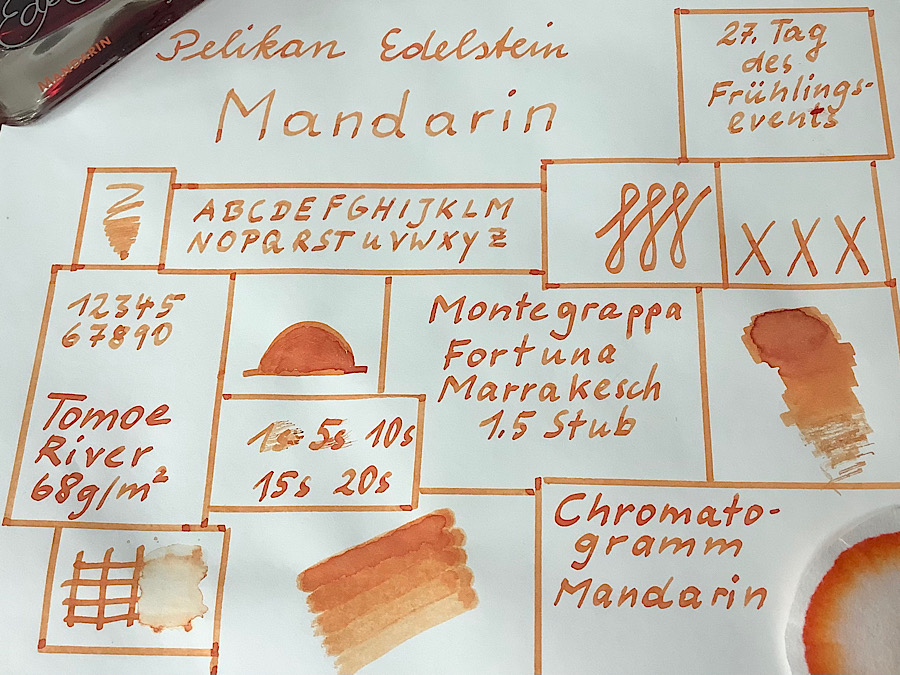 Edel
MANDARIN
Pelikan Edelstein
Mandarin
27. Tag
des
Frühlings-
events
ABCDEFGHIJKLM
NOPQRSTUVWXYZ
XXX
12345
67890
Tomoe
River
68g/m²
1s 5s 10s
15s 20s
Montegrappa
Fortuna
Marrakesch
1.5 Stub
Chromato-
gramm
Mandarin